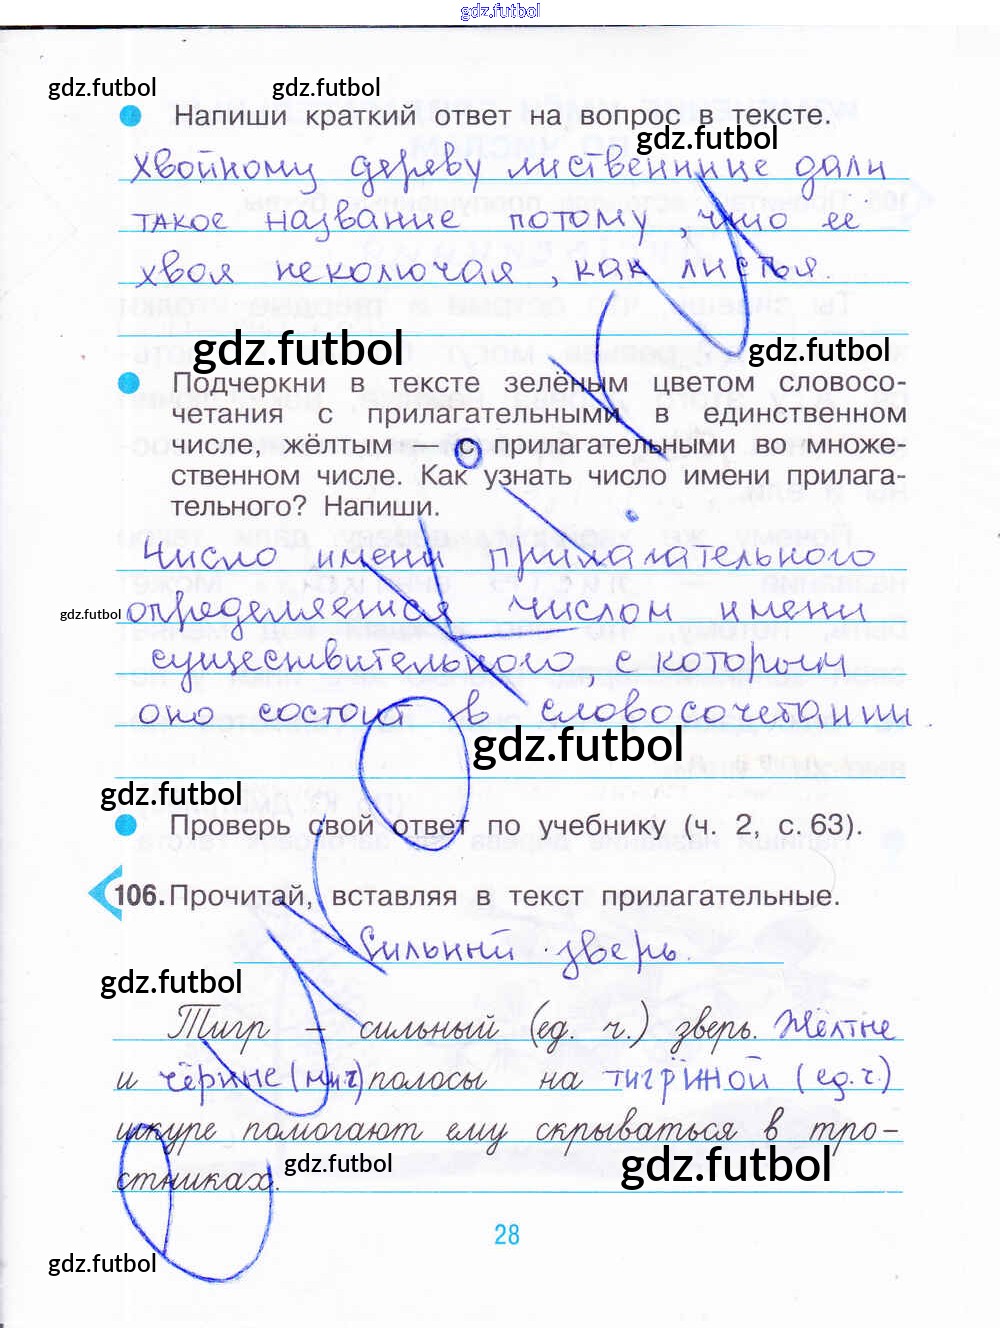 gdz.futbol
gdz.futbol gdz.futbol
Напиши краткий ответ на вопрос в тексте.
gdz.futbol
хвойному дереву лиственнице дали
такое название потому, что ее
хвоя неколючая, как листья.
gdz.futbol gdz.futbol
Подчеркни в тексте зелёным цветом словосо-
четания с прилагательными в единственном
числе, жёлтым — с прилагательными во множе-
ственном числе. Как узнать число имени прилага-
тельного? Напиши.
Число имени прилагательного
gdz.futbol определяется числом имени
существительного, с которым
оно состоит в словосочетании
gdz.futbol
gdz.futbol
Проверь свой ответ по учебнику (ч. 2, с. 63).
106. Прочитай, вставляя в текст прилагательные.
Сильный зверь.
gdz.futbol
Тигр – сильный (ед. ч.) зверь. Жёлтые
и чёрные (мн.ч) полосы на тигриной (ед.ч.)
шкуре помогают ему скрываться в тро-
gdz.futbol gdz.futbol
стниках.
28
gdz.futbol